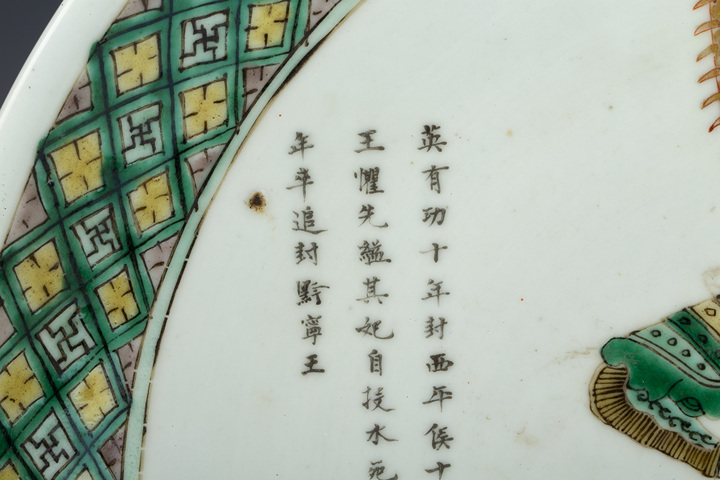 英有功十年封西平侯十
王懼先縊其妃自投水死
年卒追封黔寧王